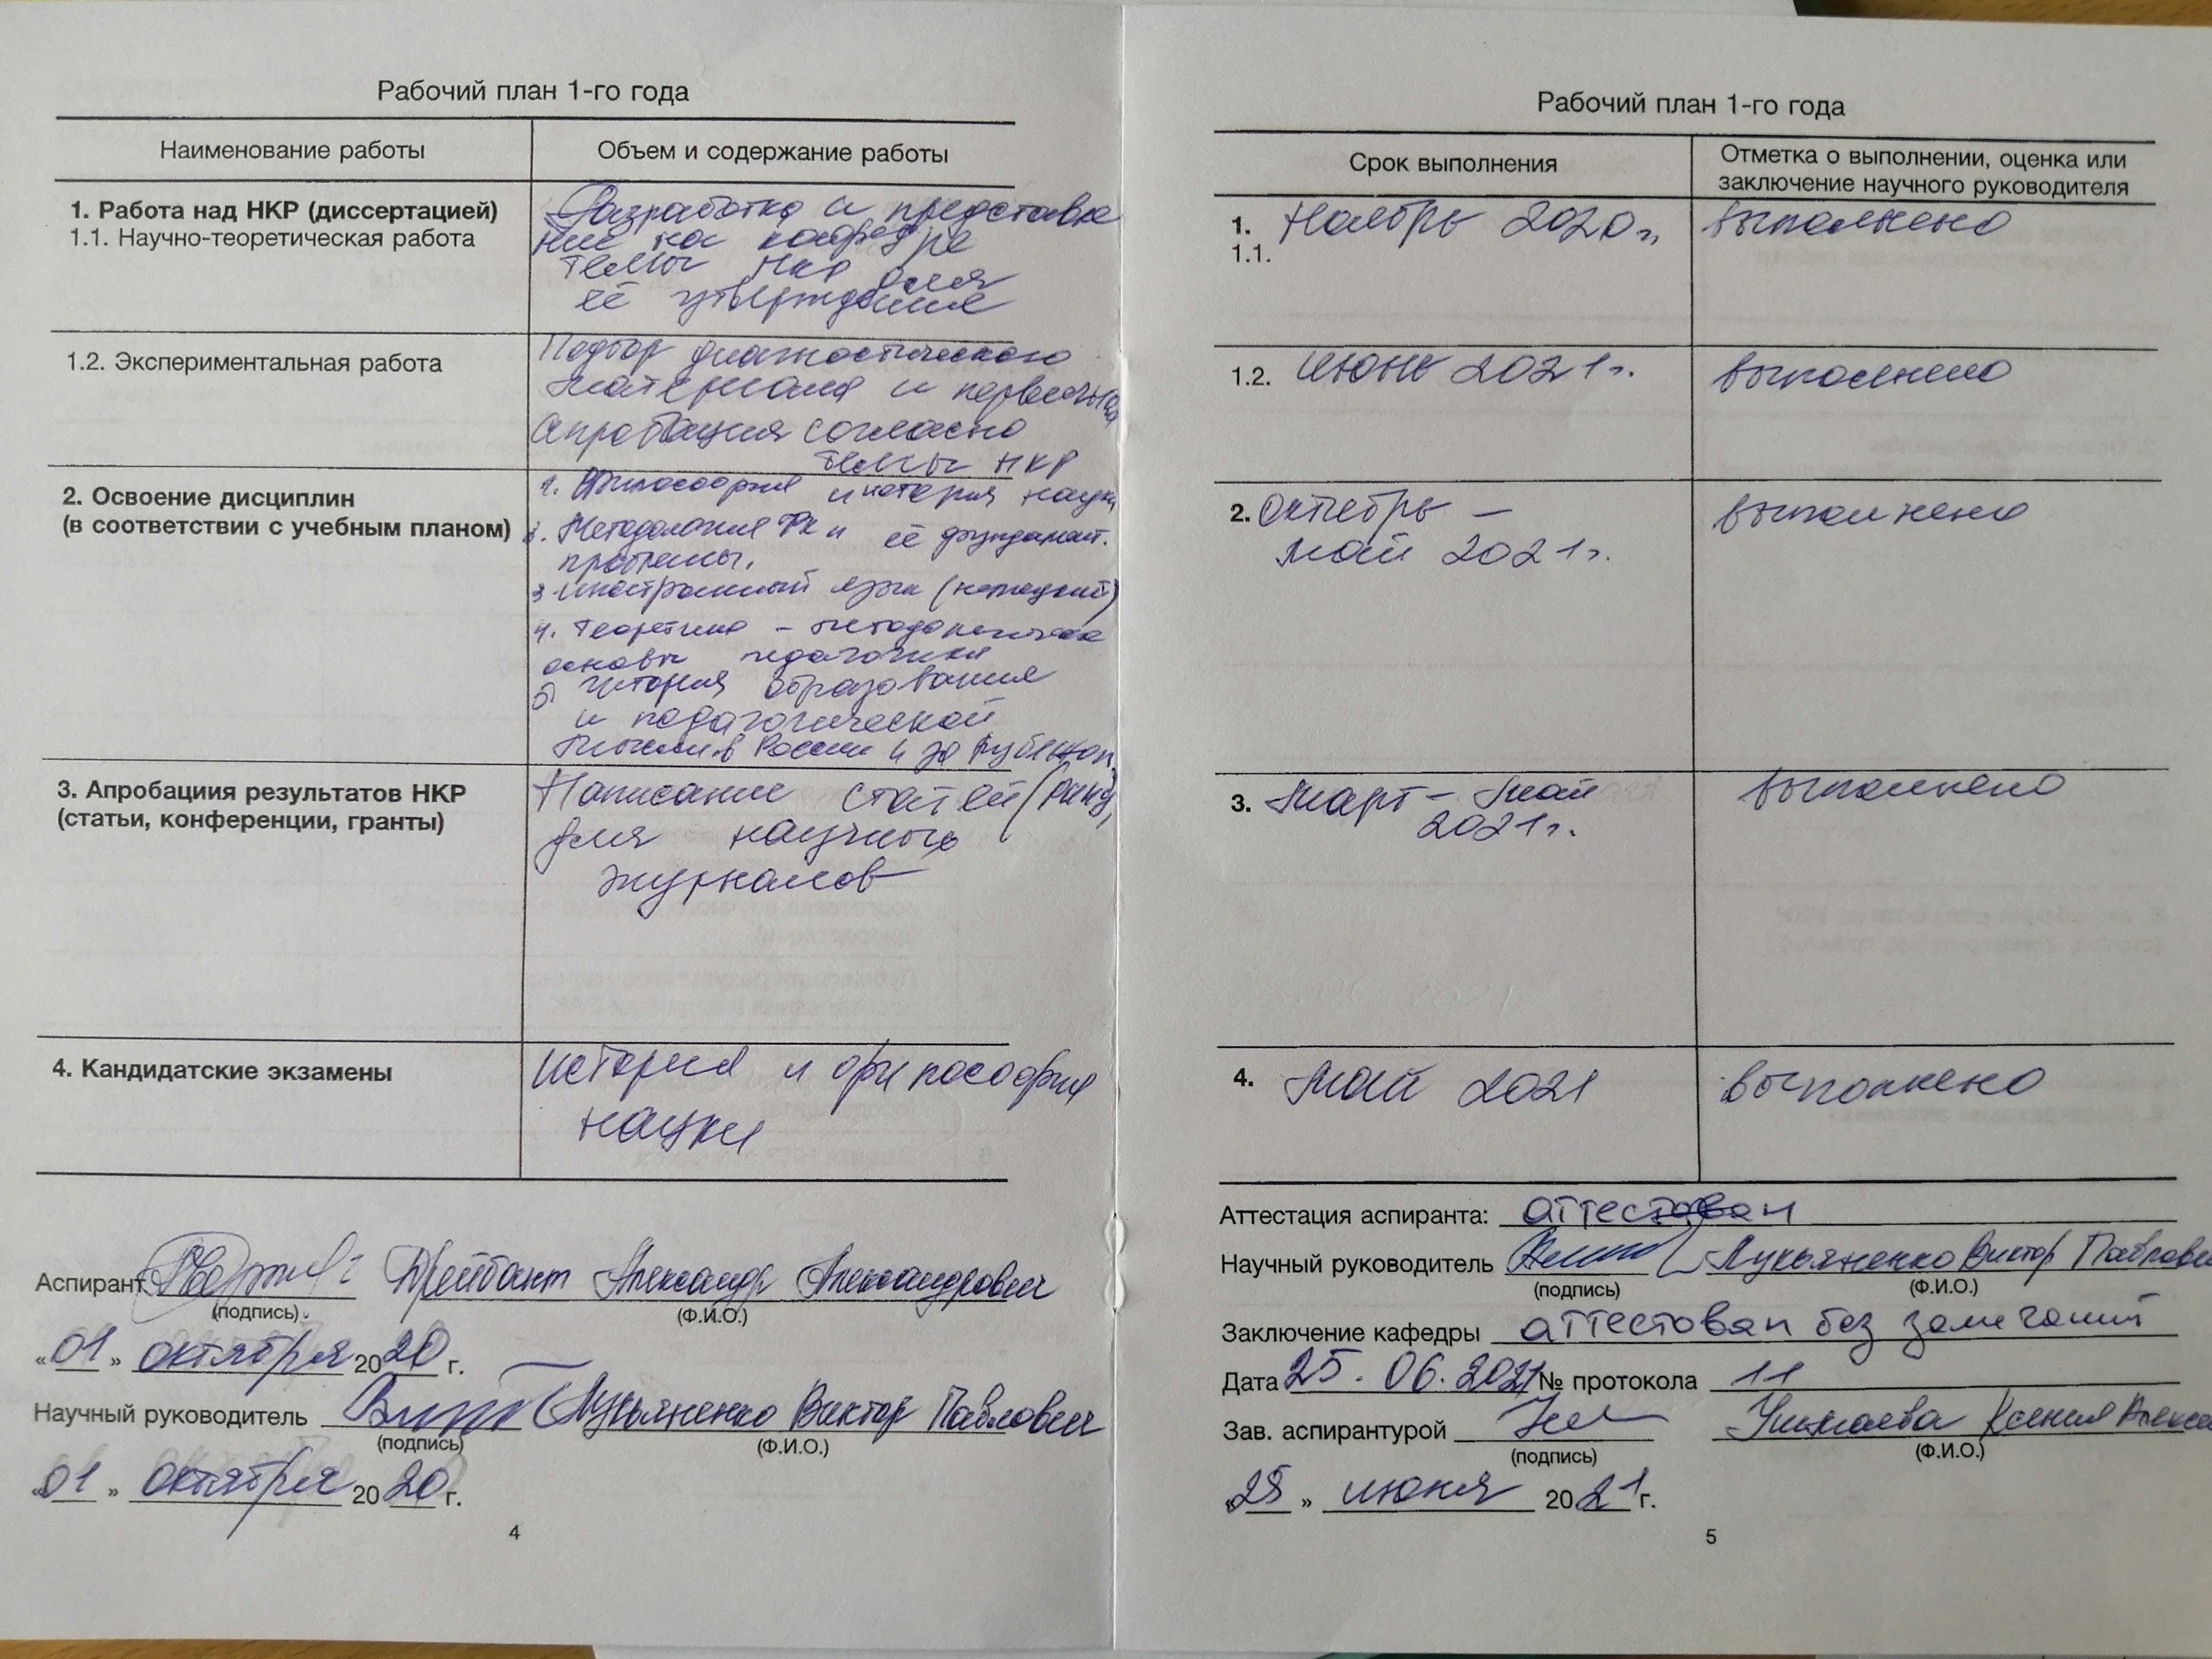 Рабочий план 1-го года
Наименование работы
Объем и содержание работы
1. Работа над НКР (диссертацией)
1.1. Научно-теоретическая работа
Разработка и представле
ние на кафедре
темы НКР для
её утверждения
1.2. Экспериментальная работа
Подбор диагностического
материала и первичная
апробация согласно
темы НКР
2. Освоение дисциплин
(в соответствии с учебным планом)
1. Философия и история науки
2. Методология ФК и её фундамент.
проблемы.
3. Иностранный язык (немецкий)
4. Теоретико - методологические
основы педагогики
5. История образования
и педагогической
мысли в России и за рубежом
3. Апробациия результатов НКР
(статьи, конференции, гранты)
Написание статей (РИНЦ)
для научных
журналов
4. Кандидатские экзамены
история и философия
науки
Аспирант Дрейбант Александр Александрович
(подпись).
(Ф.И.О.)
«01» октября 2020 г.
Научный руководитель Лукьяненко Виктор Павлович
(подпись)
(Ф.И.О.)
«01» октября 2020 г.
4
Рабочий план 1-го года
Срок выполнения
Отметка о выполнении, оценка или
заключение научного руководителя
1. Ноябрь 2020 г. выполнено
1.1.
1.2. июнь 2021 г. выполнено
2. октябрь – выполнено
май 2021 г.
3. март – май выполнено
2021 г.
4. май 2021 выполнено
Аттестация аспиранта: аттестован
Научный руководитель Лукьяненко Виктор Павлови
(подпись)
(Ф.И.О.)
Заключение кафедры аттестован без замечаний
Дата 25.06.2021 № протокола 11
Зав. аспирантурой Ксения Алекса
(подпись)
(Ф.И.О.)
«25» июня 2021 г.
5